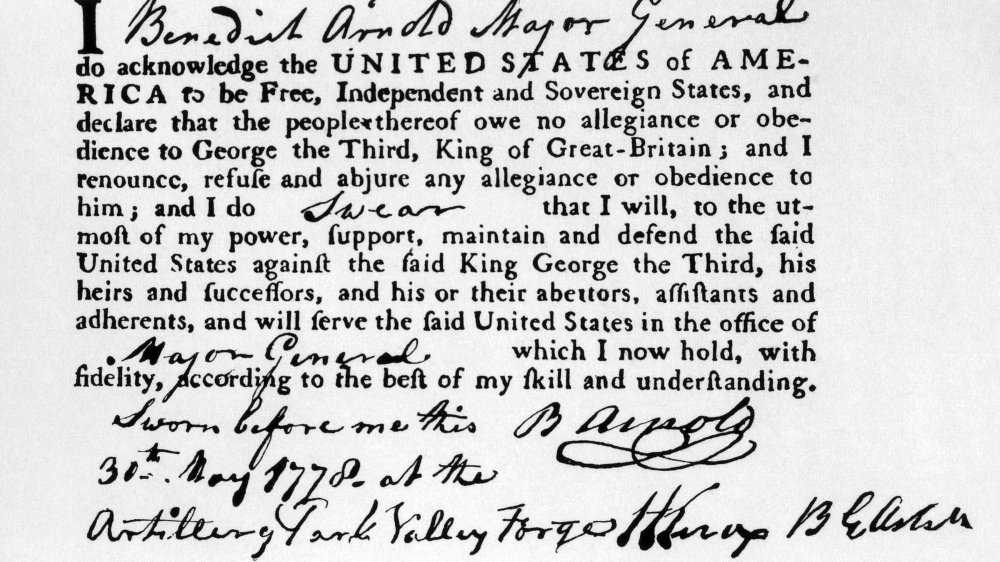 I Benedict Arnold Major General
do acknowledge the UNITED STATES of AME-
RICA to be Free, Independent and Sovereign States, and
declare that the people thereof owe no allegiance or obe-
dience to George the Third, King of Great-Britain; and I
renounce, refuſe and abjure any allegiance or obedience to
him; and I do Swear that I will, to the ut-
moſt of my power, ſupport, maintain and defend the ſaid
United States againſt the ſaid King George the Third, his
heirs and ſucceſſors, and his or their abettors, aſſiſtants and
adherents, and will ſerve the ſaid United States in the office of
Major General which I now hold, with
fidelity, according to the beſt of my ſkill and underſtanding.
Sworn before me this B Arnold
30th May 1778. at the
Artillery Park Valley Forge HKnox B G